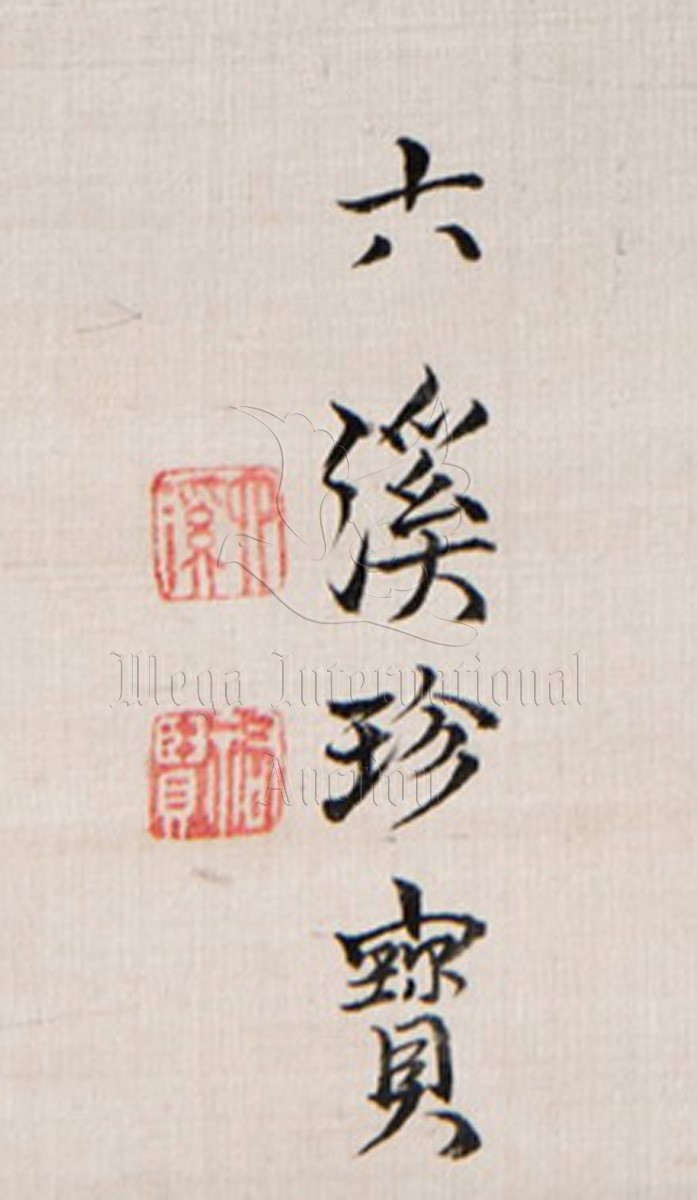 六溪珍寶
六溪
Mega International
Auction